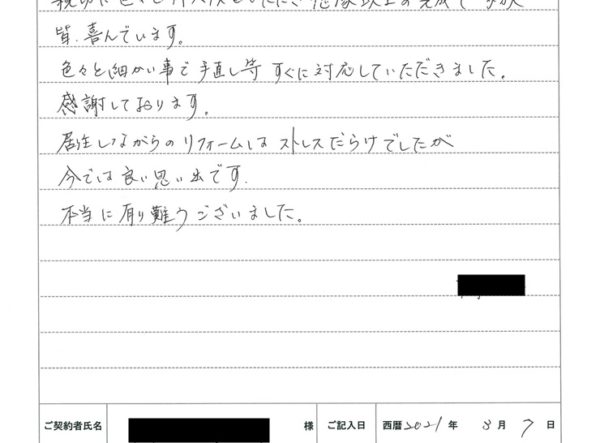 親切に色々とアドバイスをいただき想像以上の完成で家族
皆、喜んでいます。
色々と細かい事で手直し等 すぐに対応していただきました。
感謝しております。
居住しながらのリフォームは ストレスだらけでしたが
今では良い思い出です。
本当に有り難うございました。
ご契約者氏名 様 ご記入日 西暦2021年 3月7日